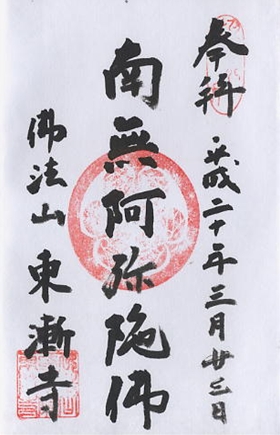 奉拝 平成二十年三月廿三日
南無阿弥陀佛
佛法山東漸寺